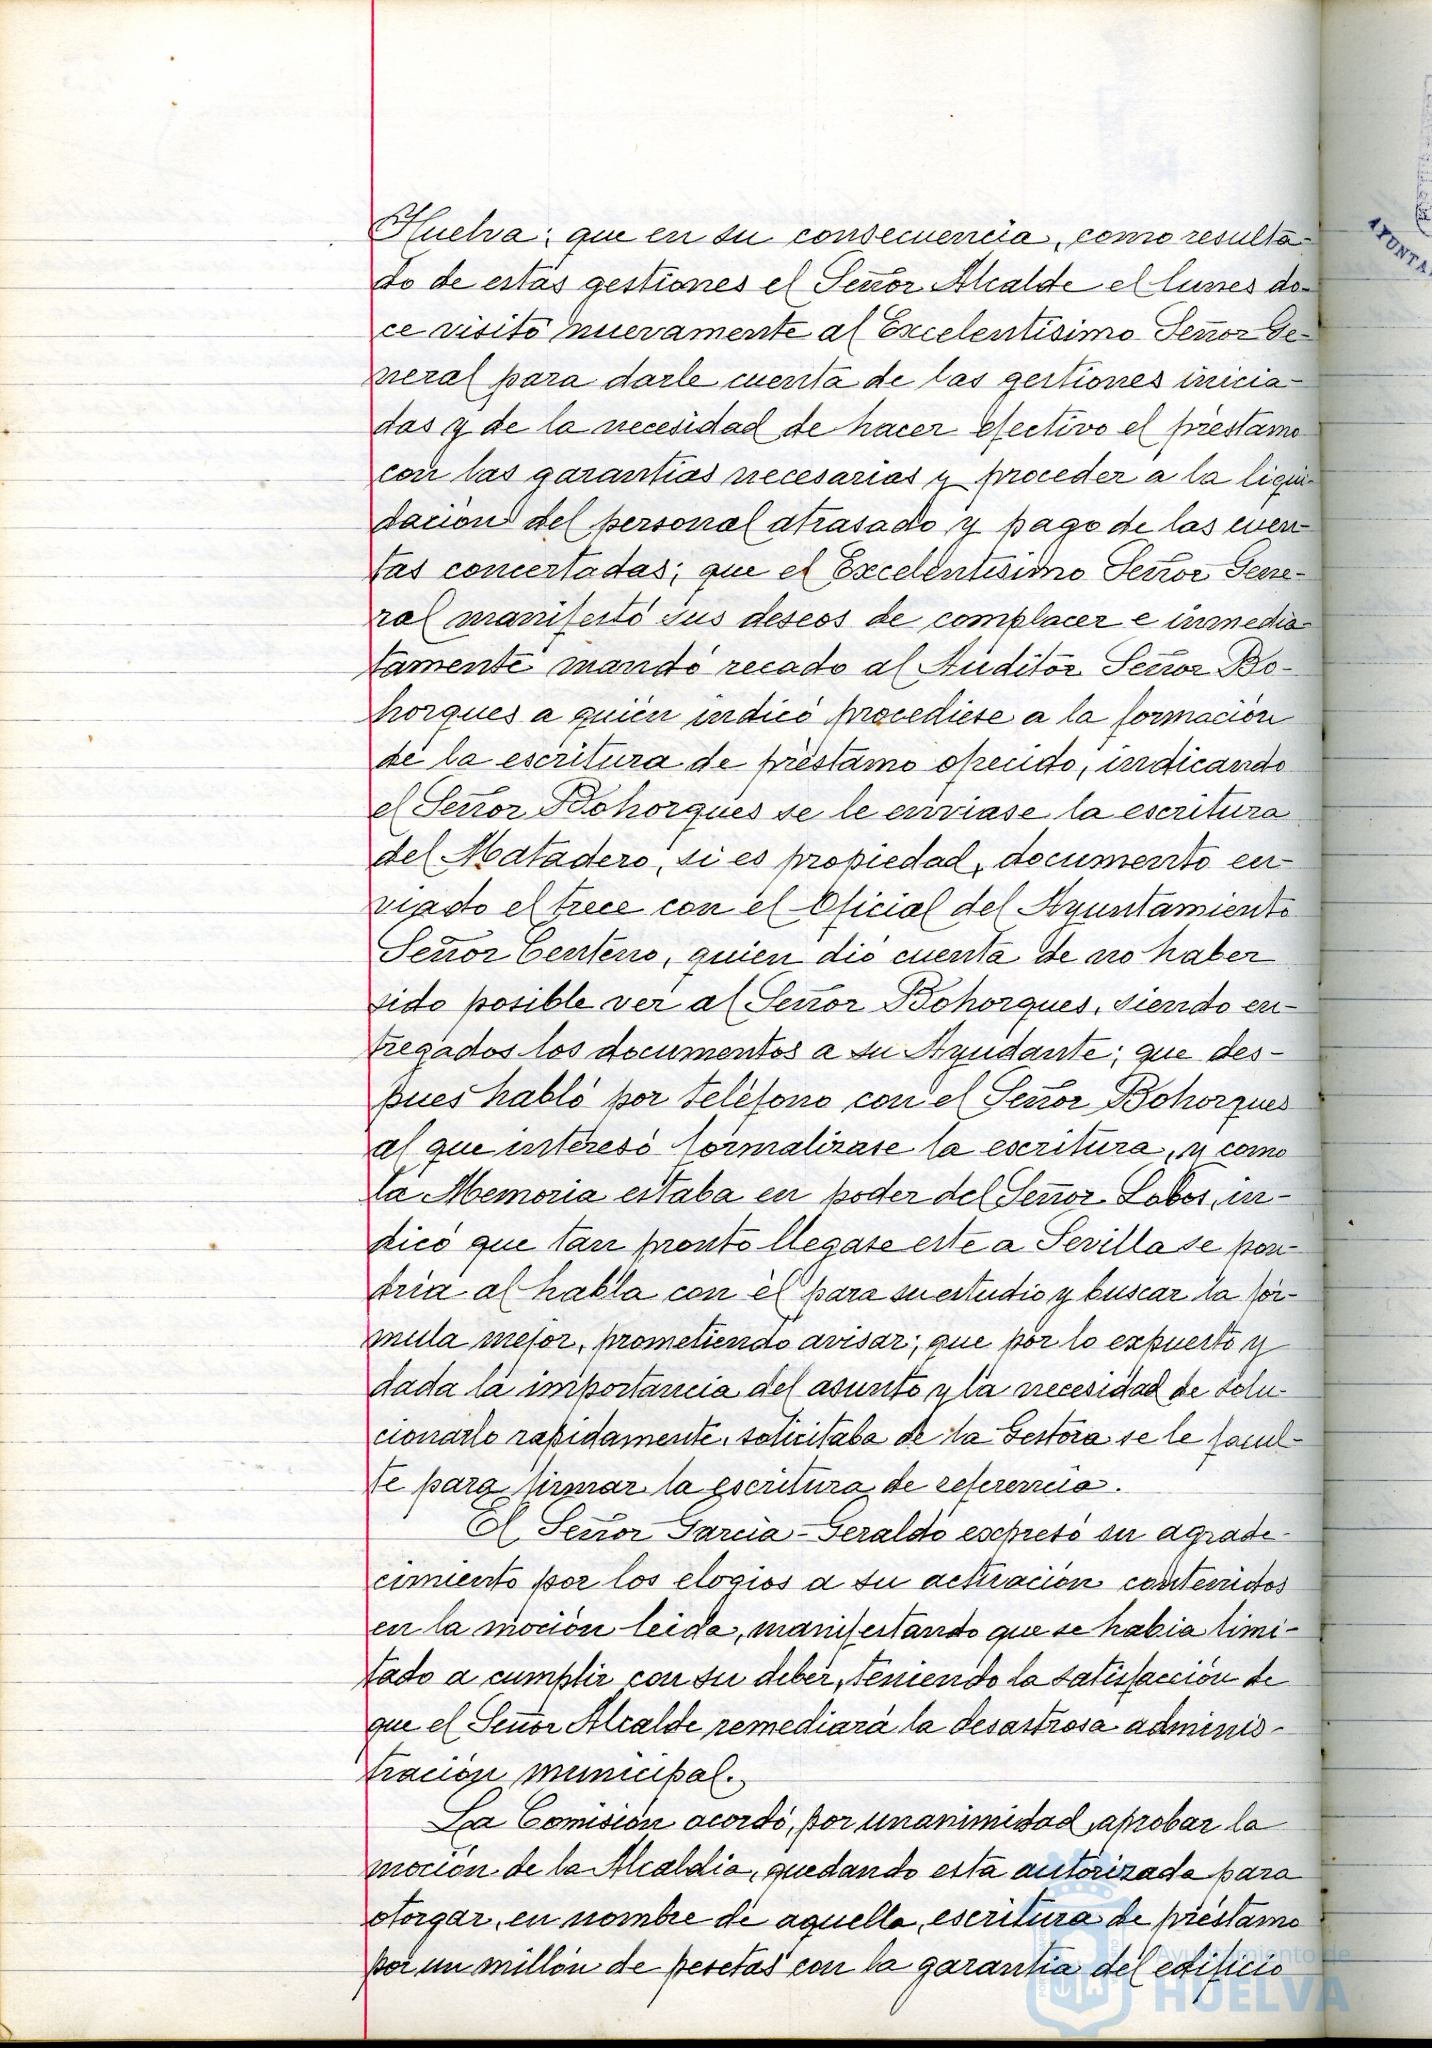 Huelva; que en su consecuencia, como resulta-
do de estas gestiones el Señor Alcalde el lunes do-
ce visitó nuevamente al Excelentísimo Señor Ge-
neral para darle cuenta de las gestiones inicia-
das y de la necesidad de hacer efectivo el préstamo
con las garantías necesarias y proceder a la liqui-
dación del personal atrasado y pago de las cuen-
tas concertadas; que el Excelentísimo Señor Gene-
ral manifestó sus deseos de complacer e inmedia-
tamente mandó recado al Auditor Señor Bo-
horques a quien indicó procediese a la formación
de la escritura de préstamo ofrecido, indicando
el Señor Bohorques se le enviase la escritura
del Matadero, si es propiedad, documento en-
viado el trece con el Oficial del Ayuntamiento
Señor Centeno, quien dió cuenta de no haber
sido posible ver al Señor Bohorques, siendo en-
tregados los documentos a su Ayudante; que des-
pues habló por teléfono con el Señor Bohorques
al que interesó formalizase la escritura, y como
la Memoria estaba en poder del Señor Lobos, in-
dicó que tan pronto llegase este a Sevilla se pon-
dria al habla con él para su estudio y buscar la fór-
mula mejor, prometiendo avisar; que por lo expuesto y
dada la importancia del asunto y la necesidad de solu-
cionarlo rapidamente, solicitaba de la Gestora se le facul-
te para firmar la escritura de referencia.
El Señor García-Geraldo expresó su agrade-
cimiento por los elogios a su actuación contenidos
en la moción leida, manifestando que se habia limi-
tado a cumplir con su deber, teniendo la satisfacción de
que el Señor Alcalde remediará la desastrosa adminis-
tración municipal.
La Comisión acordó, por unanimidad, aprobar la
moción de la Alcaldia, quedando esta autorizada para
otorgar, en nombre de aquella, escritura de préstamo
por un millón de pesetas con la garantia del edificio
AYUNTA
Ayuntamiento de
HUELVA